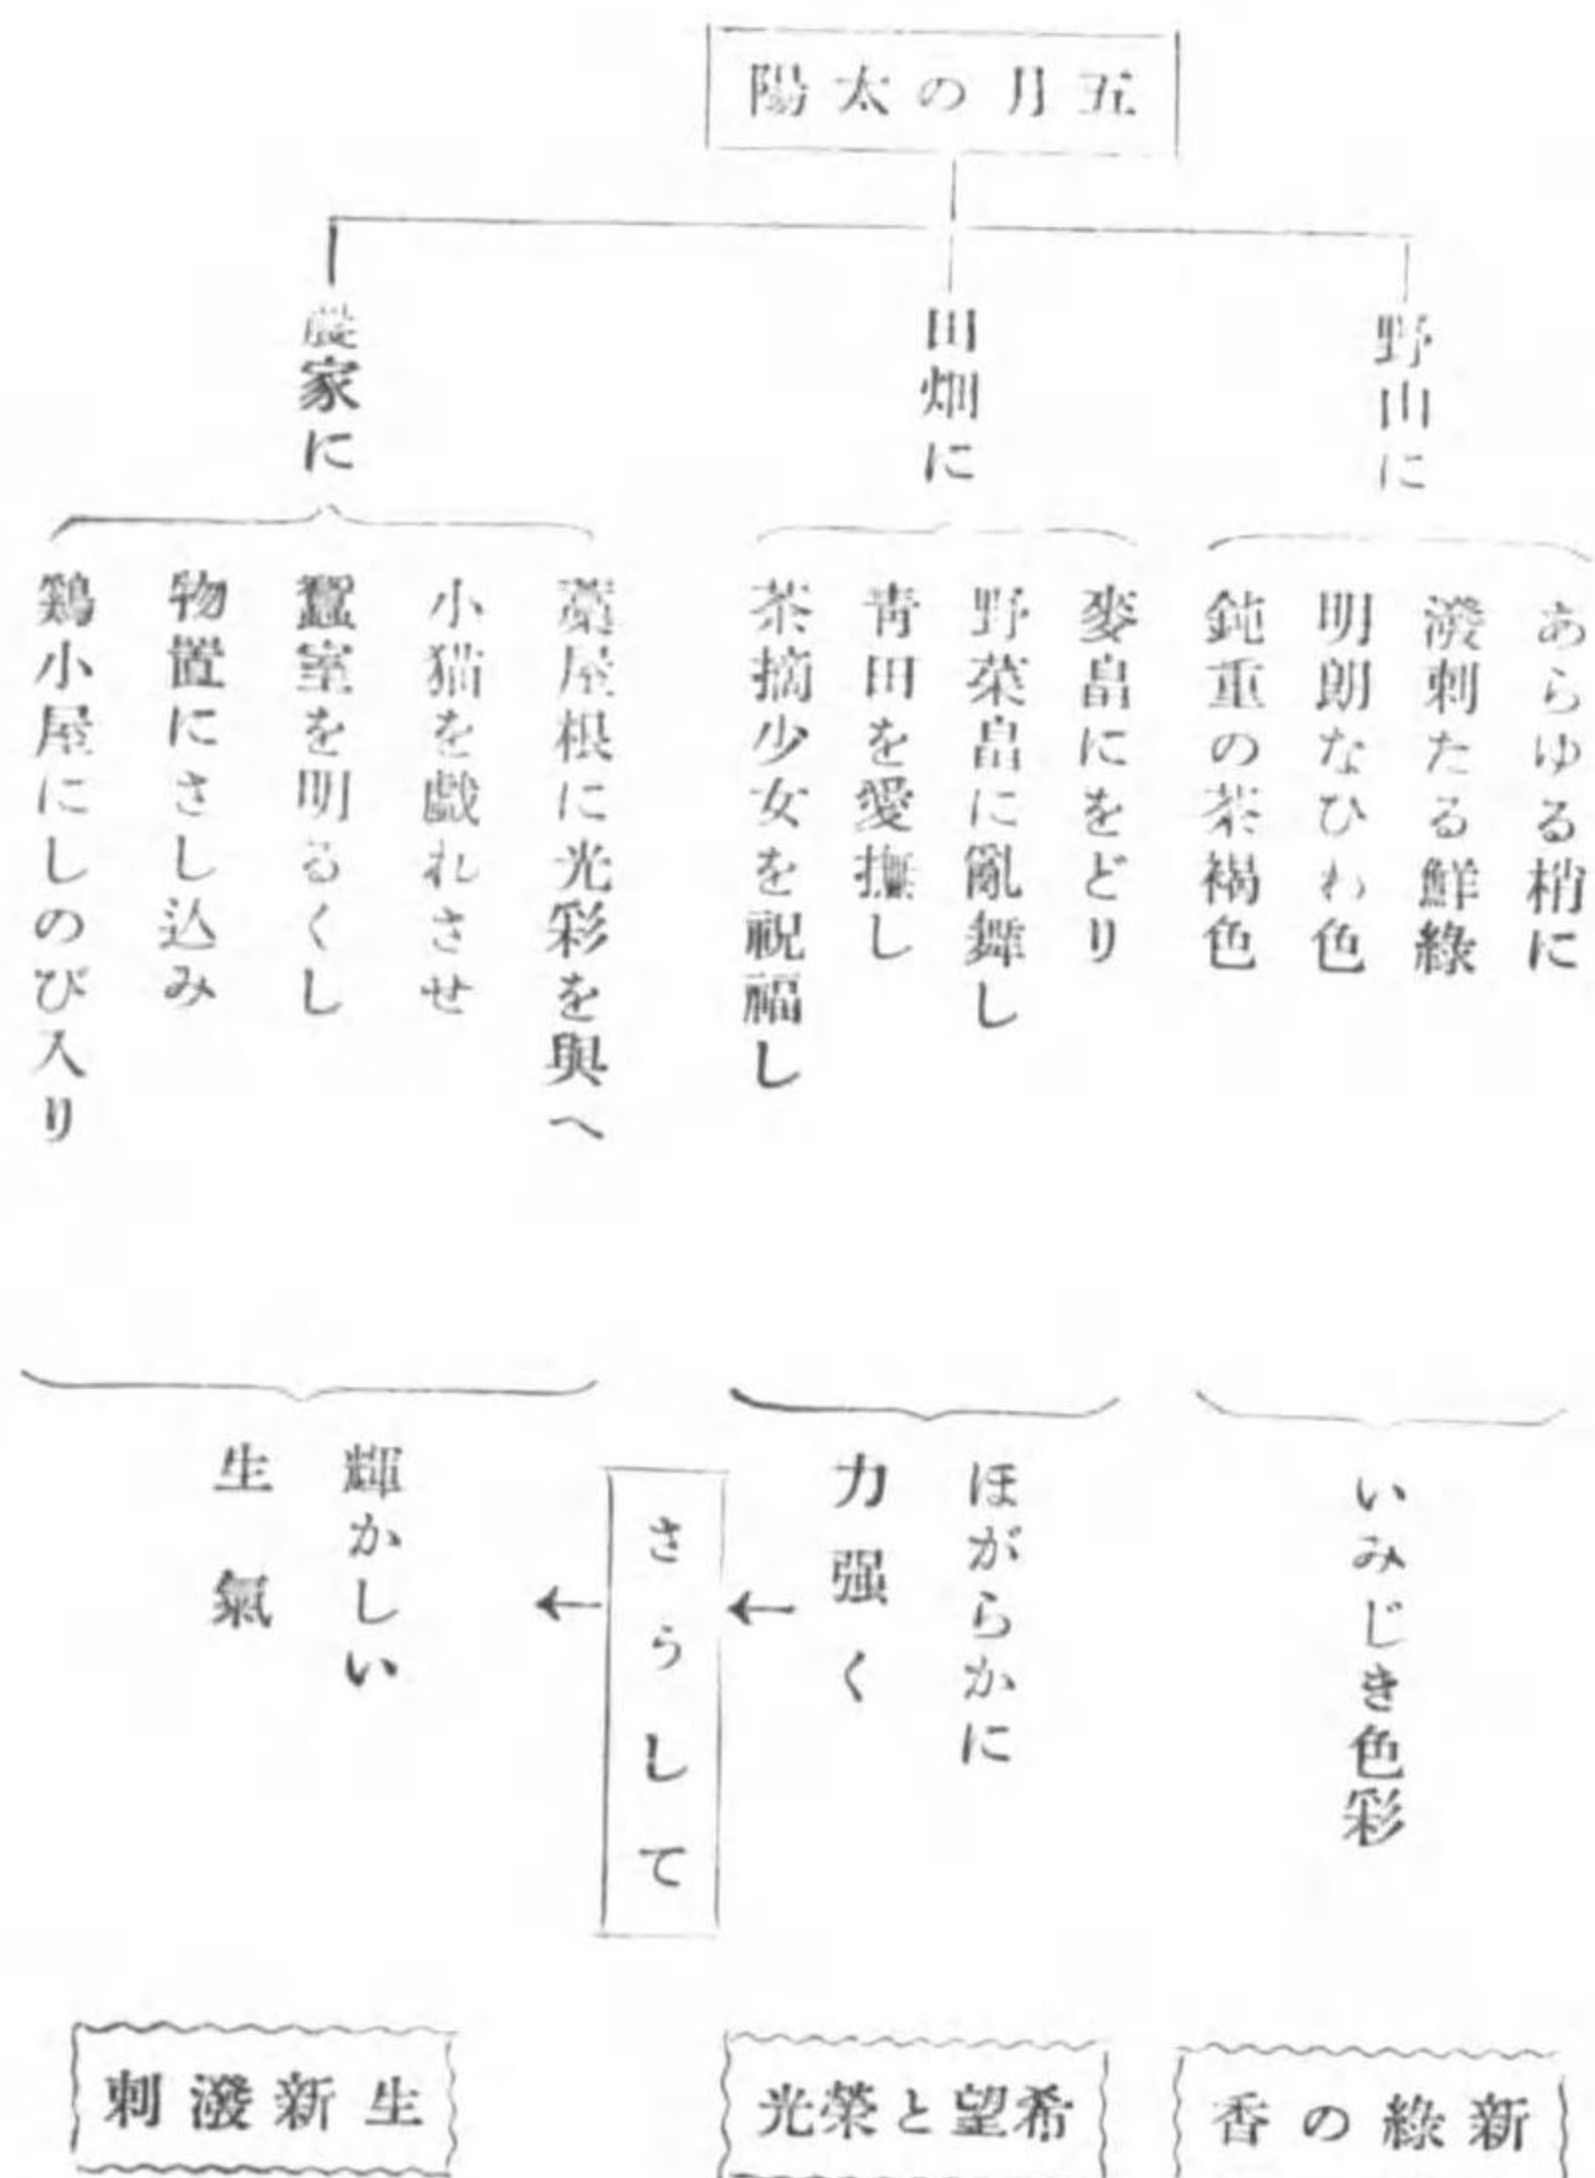 五月の太陽
野山に
あらゆる梢に
潑剌たる鮮綠
明朗なひわ色
鈍重の茶褐色
いみじき色彩
新綠の香
田畑に
麥畠にをどり
野菜畠に亂舞し
青田を愛撫し
茶摘少女を祝福し
ほがらかに
力强く
希望と榮光
さうして
農家に
藁屋根に光彩を與へ
小猫を戯れさせ
蠶室を明るくし
物置にさし込み
鶏小屋にしのび入り
輝かしい
生氣
生新潑剌